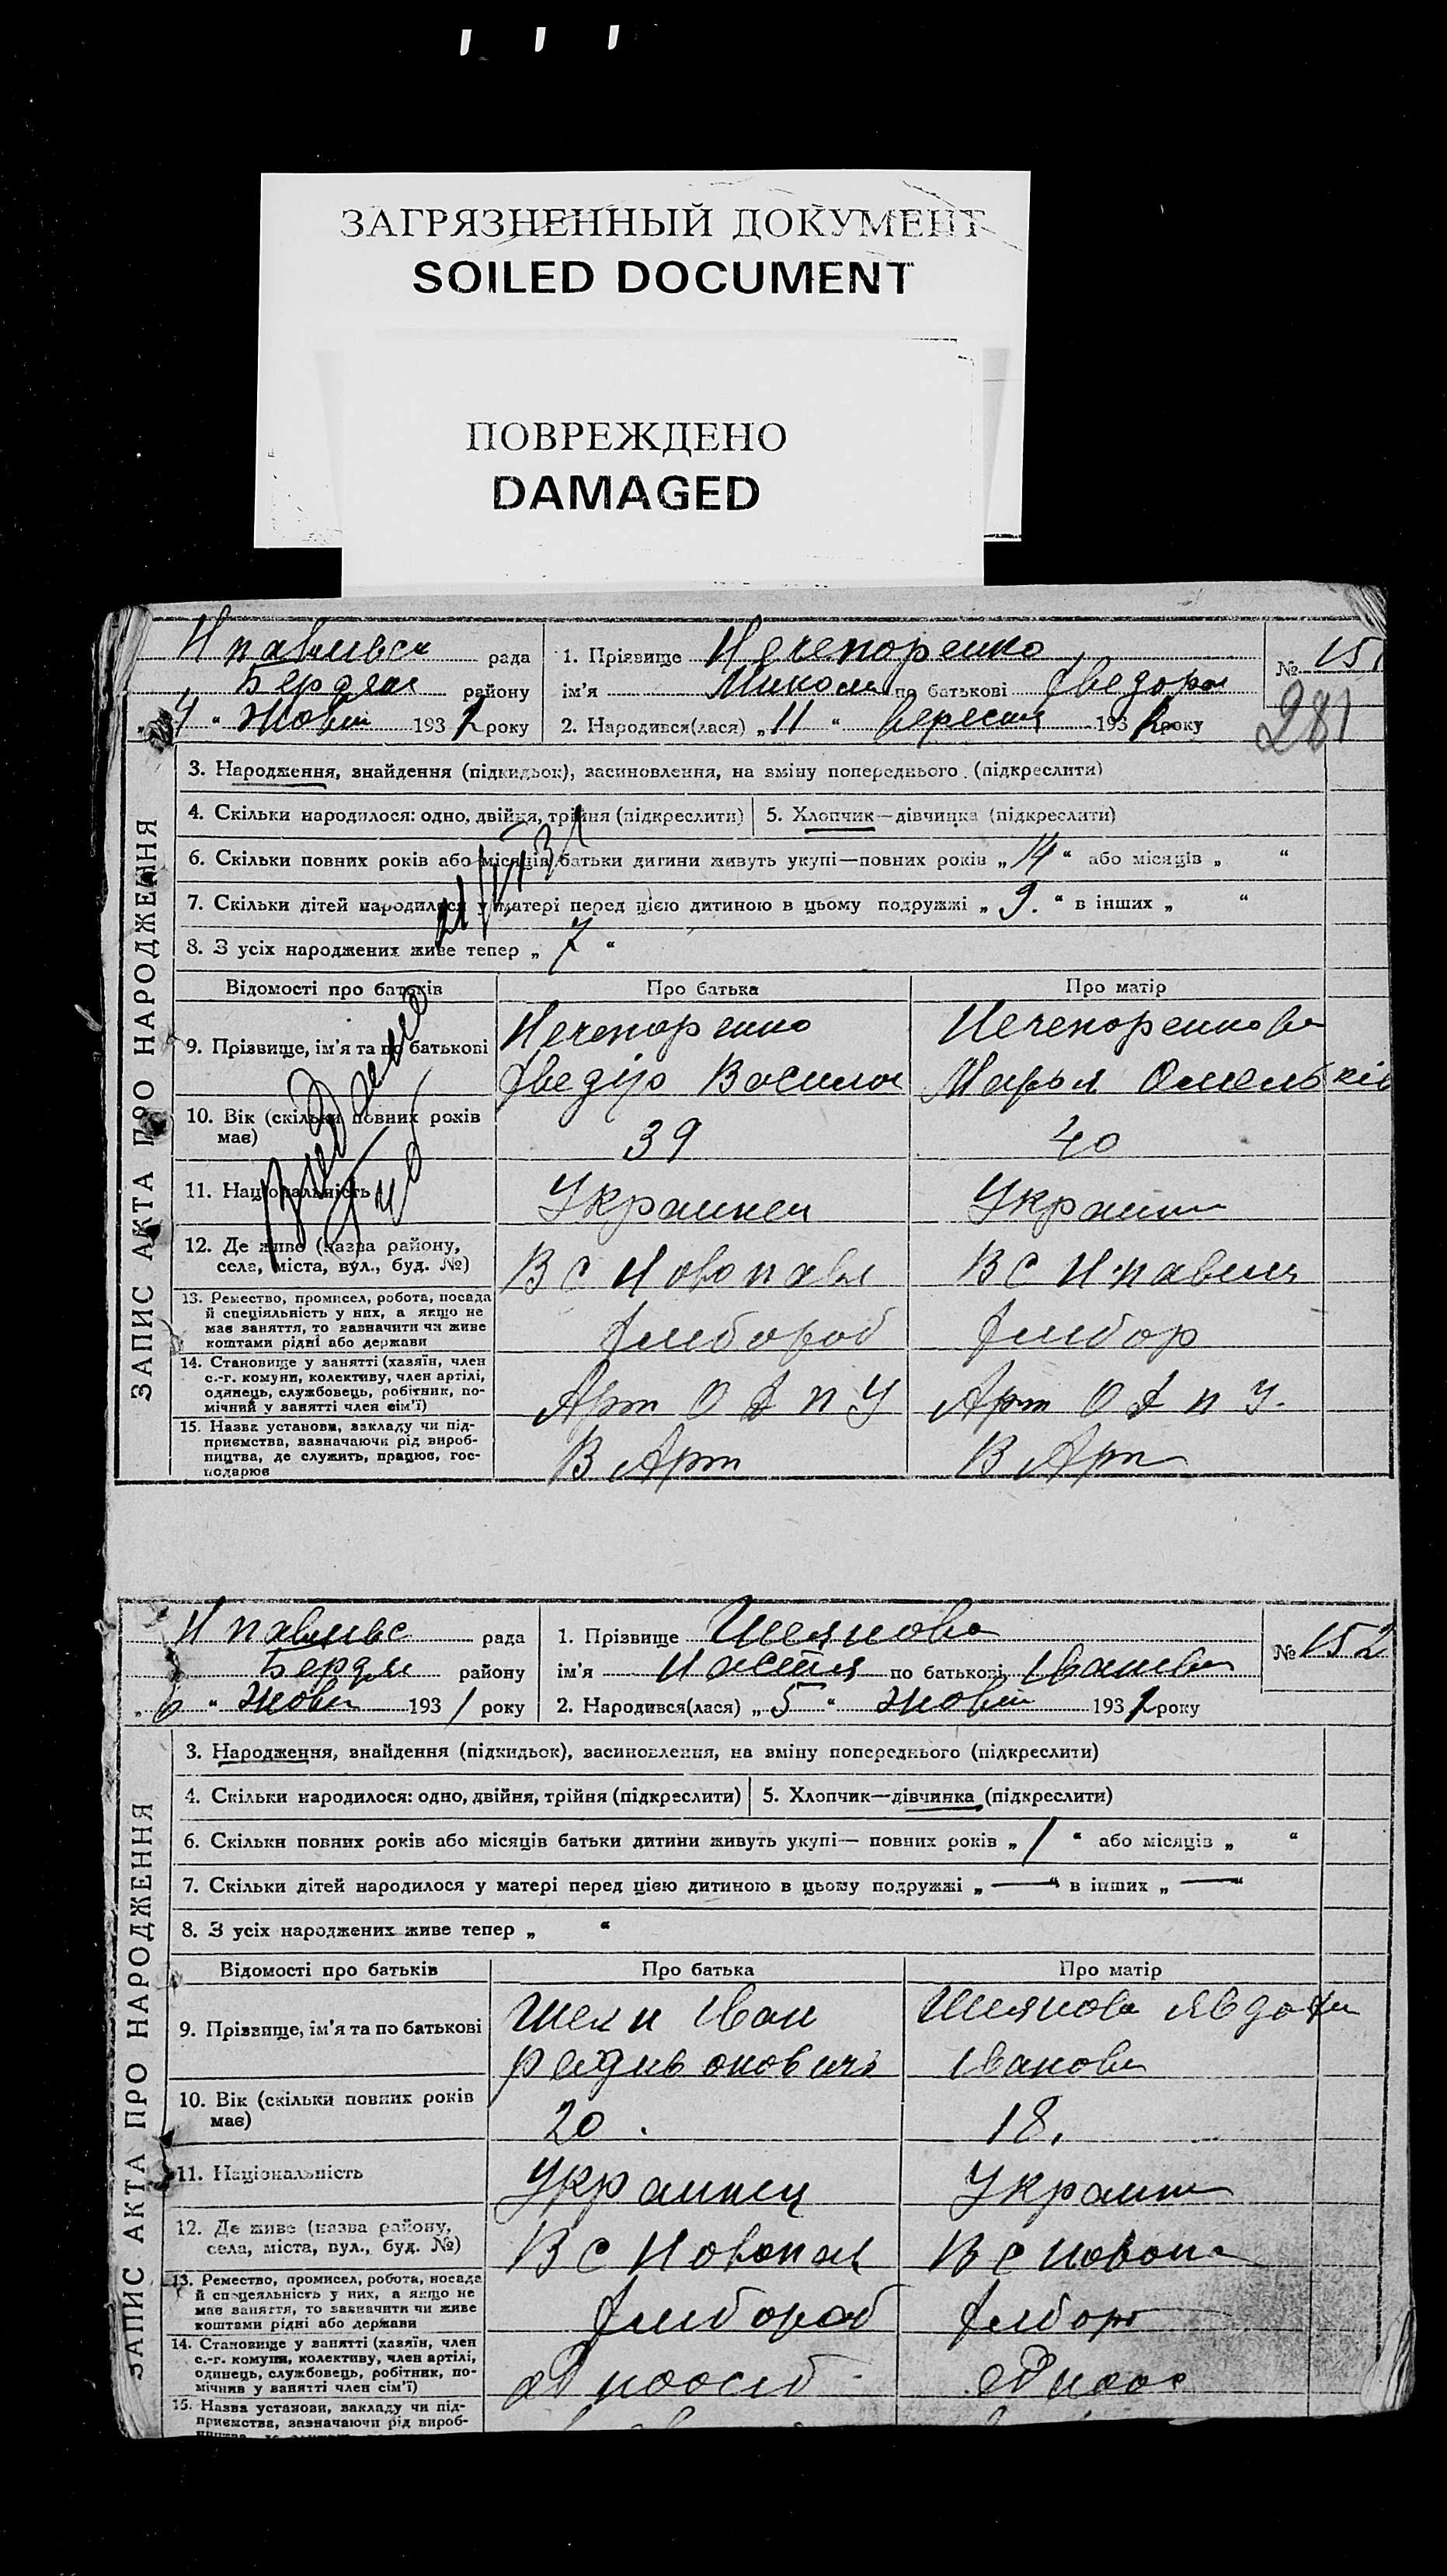 ЗАГРЯЗНЕННЫЙ ДОКУМЕНТ
SOILED DOCUMENT
ПОВРЕЖДЕНО
DAMAGED
рада
Бердян району
Жовт 193 року
1. Прізвище Нечепоренко
ім'я Микола по батькові Хведоро
2. Народився(лася) „11“ вересня 193 року
№ 151
281
ЗАПИС АКТА ПРО НАРОДЖЕННЯ
3. Народження, знайдення (підкидьок), засиновлення, на зміну попереднього (підкреслити)
4. Скільки народилося: одно, двійня, трійня (підкреслити)
5. Хлопчик—дівчинка (підкреслити)
6. Скільки повних років або місяців батьки дитини живуть укупі—повних років „14“ або місяців „ “
7. Скільки дітей народилося у матері перед цією дитиною в цьому подружжі „9.“ в інших „ “
8. З усіх народжених живе тепер „7“
Відомості про батьків
Про батька
Про матір
9. Прізвище, ім'я та по батькові
Нечепоренко
Хведір Васильов
Нечепоренкова
Марья Омельків
10. Вік (скільки повних років
має)
39
40
11. Національність
Украинец
Украин
12. Де живе (назва району,
села, міста, вул., буд. №)
В с Новопавл
В с Н.павлив
13. Ремество, промисел, робота, посада
й спеціяльність у них, а якщо не
має заняття, то зазначити чи живе
коштами рідні або держави
Хлибороб
Хлибор
14. Становище у занятті (хазяїн, член
с.-г. комуни, колективу, член артілі,
одинець, службовець, робітник, по-
мічний у занятті член сім'ї)
Арт
Арт
15. Назва установи, закладу чи під-
приємства, зазначаючи рід вироб-
ництва, де служить, працює, гос-
подарює
В Арт
В Арт
рада
Бердян району
„6“ Жовт 1931 року
1. Прізвище
ім'я Настя по батькові Иванівн
2. Народився(лася) „5“ Жовт 193 року
№ 152
ЗАПИС АКТА ПРО НАРОДЖЕННЯ
3. Народження, знайдення (підкидьок), засиновлення, на зміну попереднього (підкреслити)
4. Скільки народилося: одно, двійня, трійня (підкреслити)
5. Хлопчик—дівчинка (підкреслити)
6. Скільки повних років або місяців батьки дитини живуть укупі— повних років „1“ або місяців „ “
7. Скільки дітей народилося у матері перед цією дитиною в цьому подружжі „—“ в інших „—“
8. З усіх народжених живе тепер „ “
Відомості про батьків
Про батька
Про матір
9. Прізвище, ім'я та по батькові
Иван
Радивонович
Явдоки
Иванови
10. Вік (скільки повних років
має)
20.
18.
11. Національність
Украинец
Украин
12. Де живе (назва району,
села, міста, вул., буд. №)
В с Новопав
В с Новопа
13. Ремество, промисел, робота, посада
й спецеяльність у них, а якщо не
має заняття, то зазначити чи живе
коштами рідні або держави
Хлибороб
Хлибор
14. Становище у занятті (хазяїн, член
с.-г. комуни, колективу, член артілі,
одинець, службовець, робітник, по-
мічний у занятті член сім'ї)
Одноосиб
Одноос
15. Назва установи, закладу чи під-
приємства, зазначаючи рід вироб-